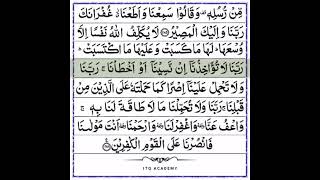 مِّنْ رُّسُلِهٖ ۚ وَقَالُوْا سَمِعْنَا وَاَطَعْنَا ۫ غُفْرَانَكَ
رَبَّنَا وَاِلَيْكَ الْمَصِيْرُ لَا يُكَلِّفُ اللّٰهُ نَفْسًا اِلَّا
وُسْعَهَا ؕ لَهَا مَا كَسَبَتْ وَعَلَيْهَا مَا اكْتَسَبَتْ ؕ
رَبَّنَا لَا تُؤَاخِذْنَاۤ اِنْ نَّسِيْنَاۤ اَوْ اَخْطَاْنَا ۚ رَبَّنَا
وَلَا تَحْمِلْ عَلَيْنَاۤ اِصْرًا كَمَا حَمَلْتَهٗ عَلَى الَّذِيْنَ مِنْ
قَبْلِنَا ۚ رَبَّنَا وَلَا تُحَمِّلْنَا مَا لَا طَاقَةَ لَنَا بِهٖ ۚ
وَاعْفُ عَنَّا ۥ وَاغْفِرْ لَنَا ۥ وَارْحَمْنَا ۥ اَنْتَ مَوْلٰىنَا
فَانْصُرْنَا عَلَى الْقَوْمِ الْكٰفِرِيْنَ
ITQ ACADEMY